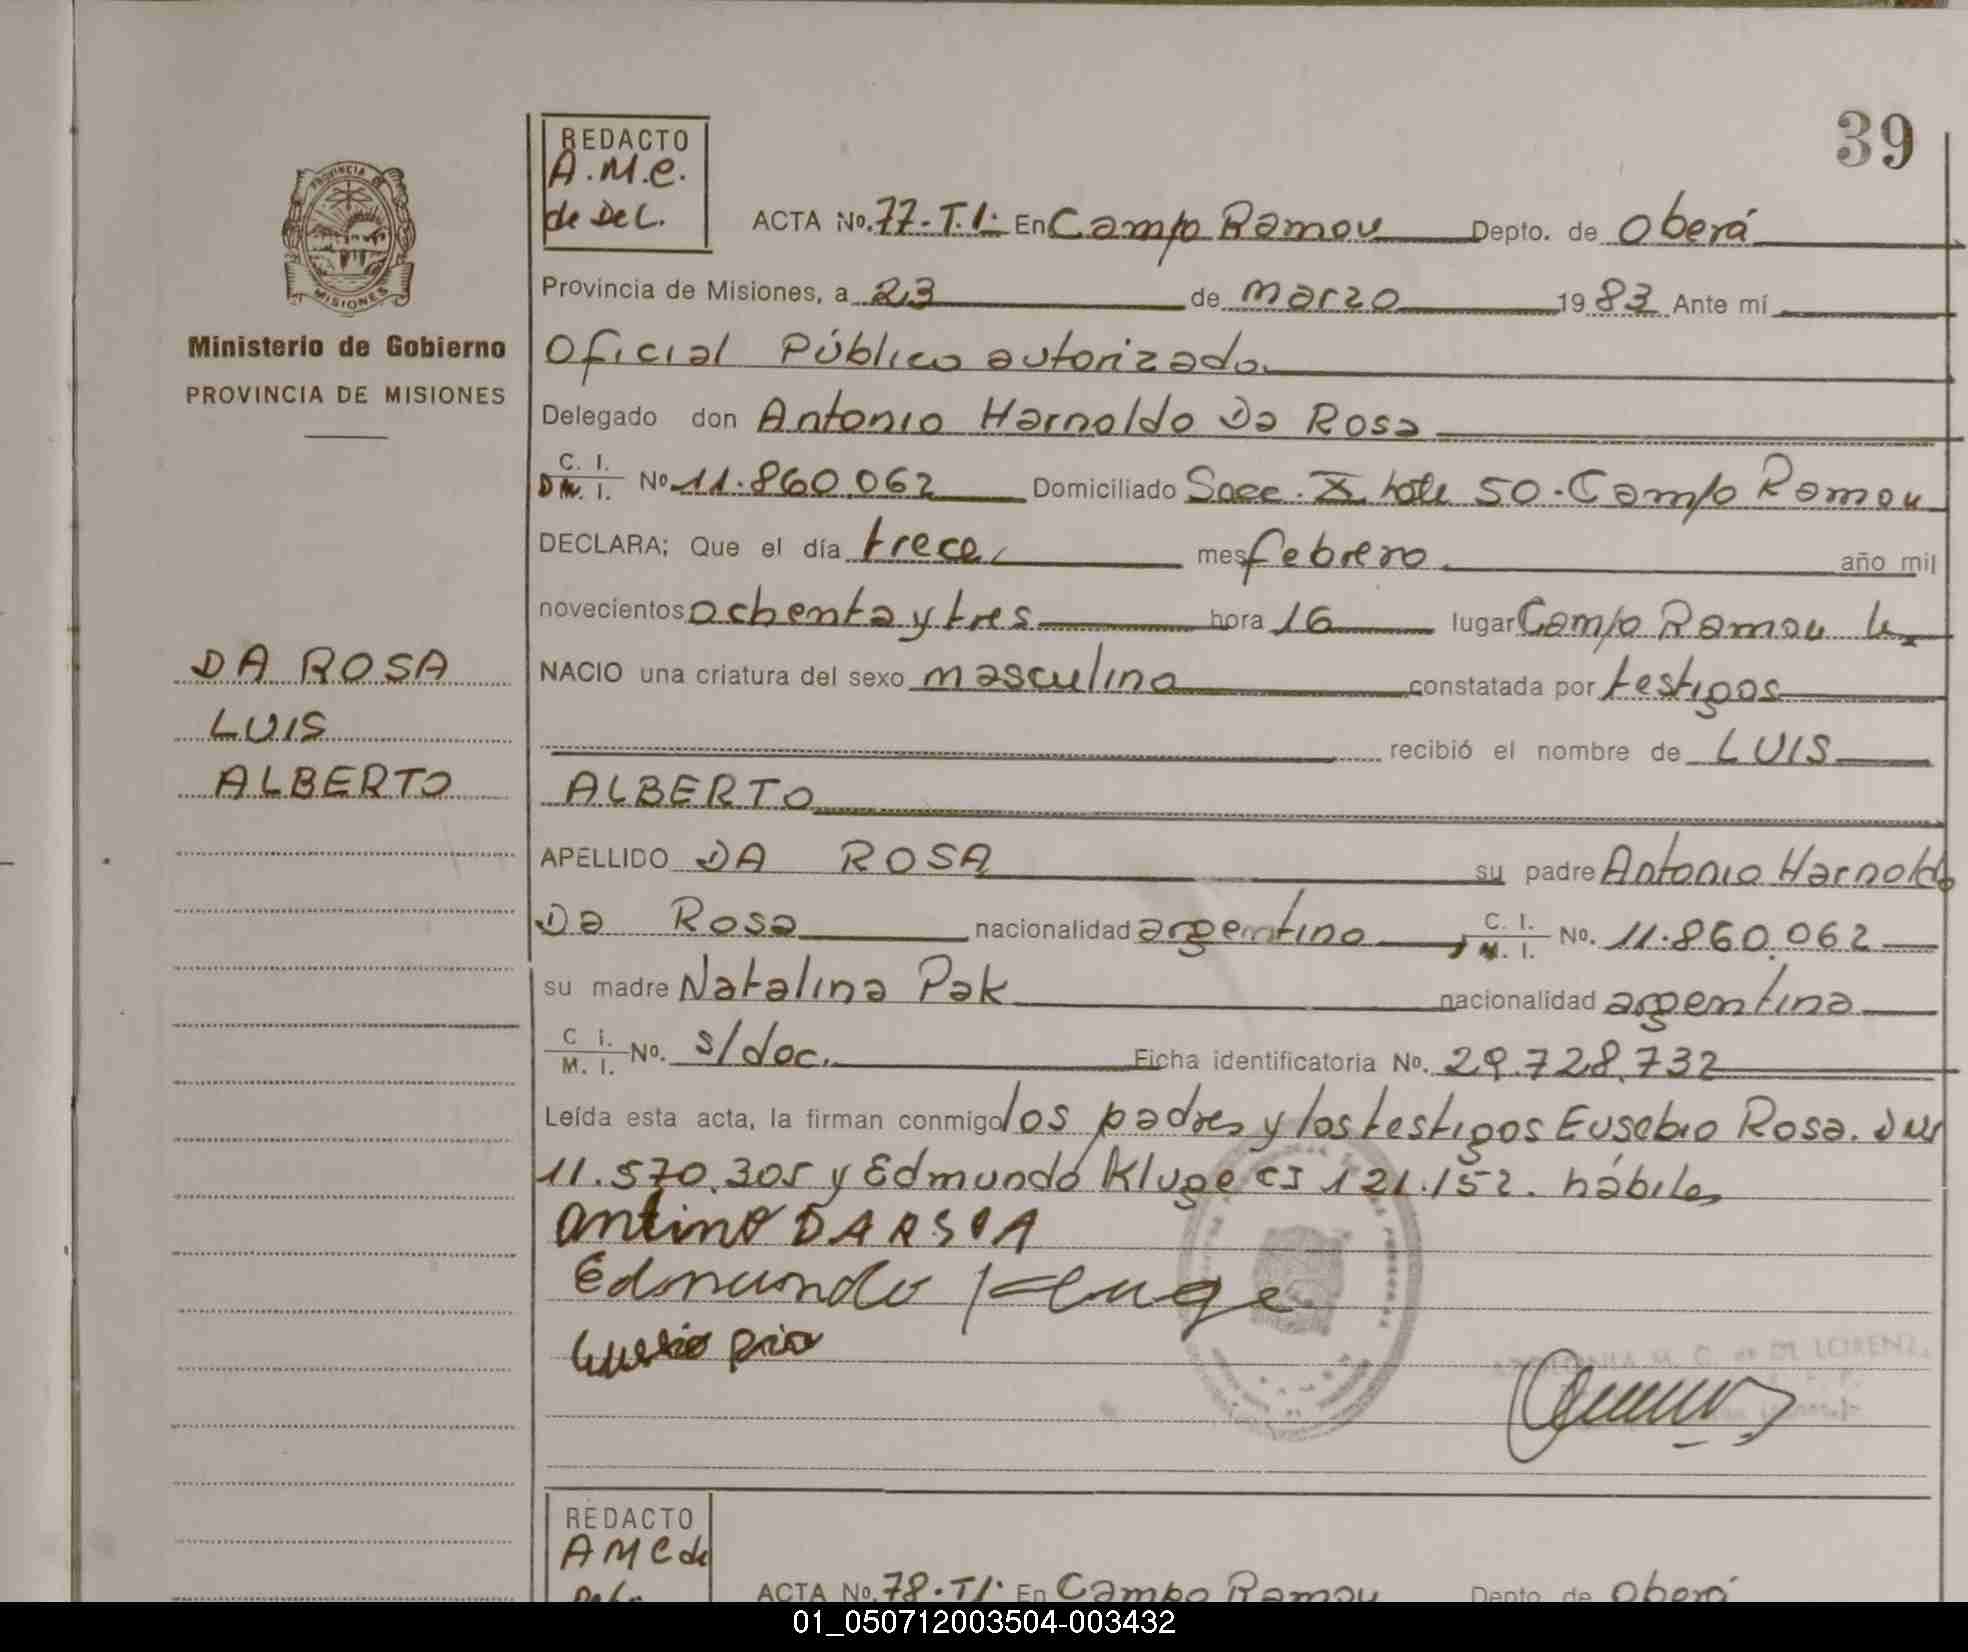 39
REDACTO
A.M.C.
de DeL.
PROVINCIA DE
MISIONES
Ministerio de Gobierno
PROVINCIA DE MISIONES
ACTA No. 77-T.I: En Campo Ramou Depto. de Oberá
Provincia de Misiones, a 23 de marzo 1983 Ante mí
Oficial Público autorizado.
Delegado don Antonio Harnoldo Da Rosa
C. I.
DN. I. No 11.860.062 Domiciliado Secc. X lote 50. Campo Ramou
DECLARA; Que el día trece mes febrero año mil
novecientos ochenta y tres hora 16 lugar Campo Ramou
NACIO una criatura del sexo masculino constatada por testigos
recibió el nombre de LUIS
ALBERTO
DA ROSA
LUIS
ALBERTO
APELLIDO DA ROSA su padre Antonio Harnoldo
Da Rosa nacionalidad argentino C. I. M. I. No. 11.860.062
su madre Natalina Pak nacionalidad argentina
C I. M. I. No. s/doc. Ficha identificatoria No. 29.728.732
Leída esta acta, la firman conmigo los padres y los testigos Eusebio Rosa. DNI
11.570.305 y Edmundo Kluge CI 121.152. hábiles
DARSOA
Edmundo Kluge
M. C. de DE LORENZ
REDACTO
AMC de
DeL.
ACTA No. 78-TI. En Campo Ramou Depto de Oberá
01_050712003504-003432